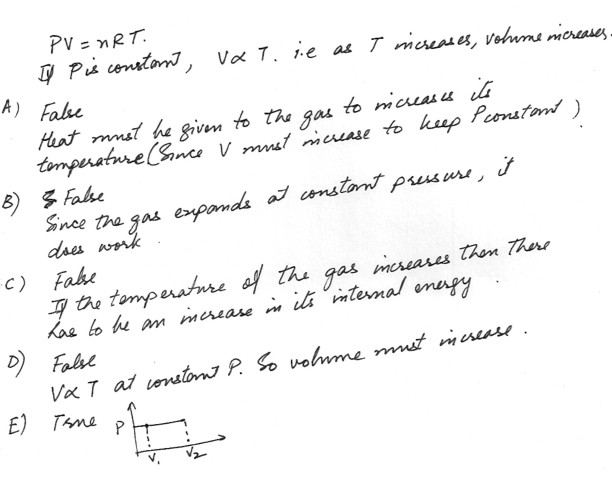 PV = nRT.
If P is constant, V∝ T. i.e as T increases, volume increases.
A) False
Heat must be given to the gas to increases its
temperature (Since V must increase to keep P constant)
B) False
Since the gas expands at constant pressure, it
does work.
C) False
If the temperature of the gas increases then there
has to be an increase in its internal energy.
D) False
V∝ T at constant P. So volume must increase.
E) True
P
V₁ V₂